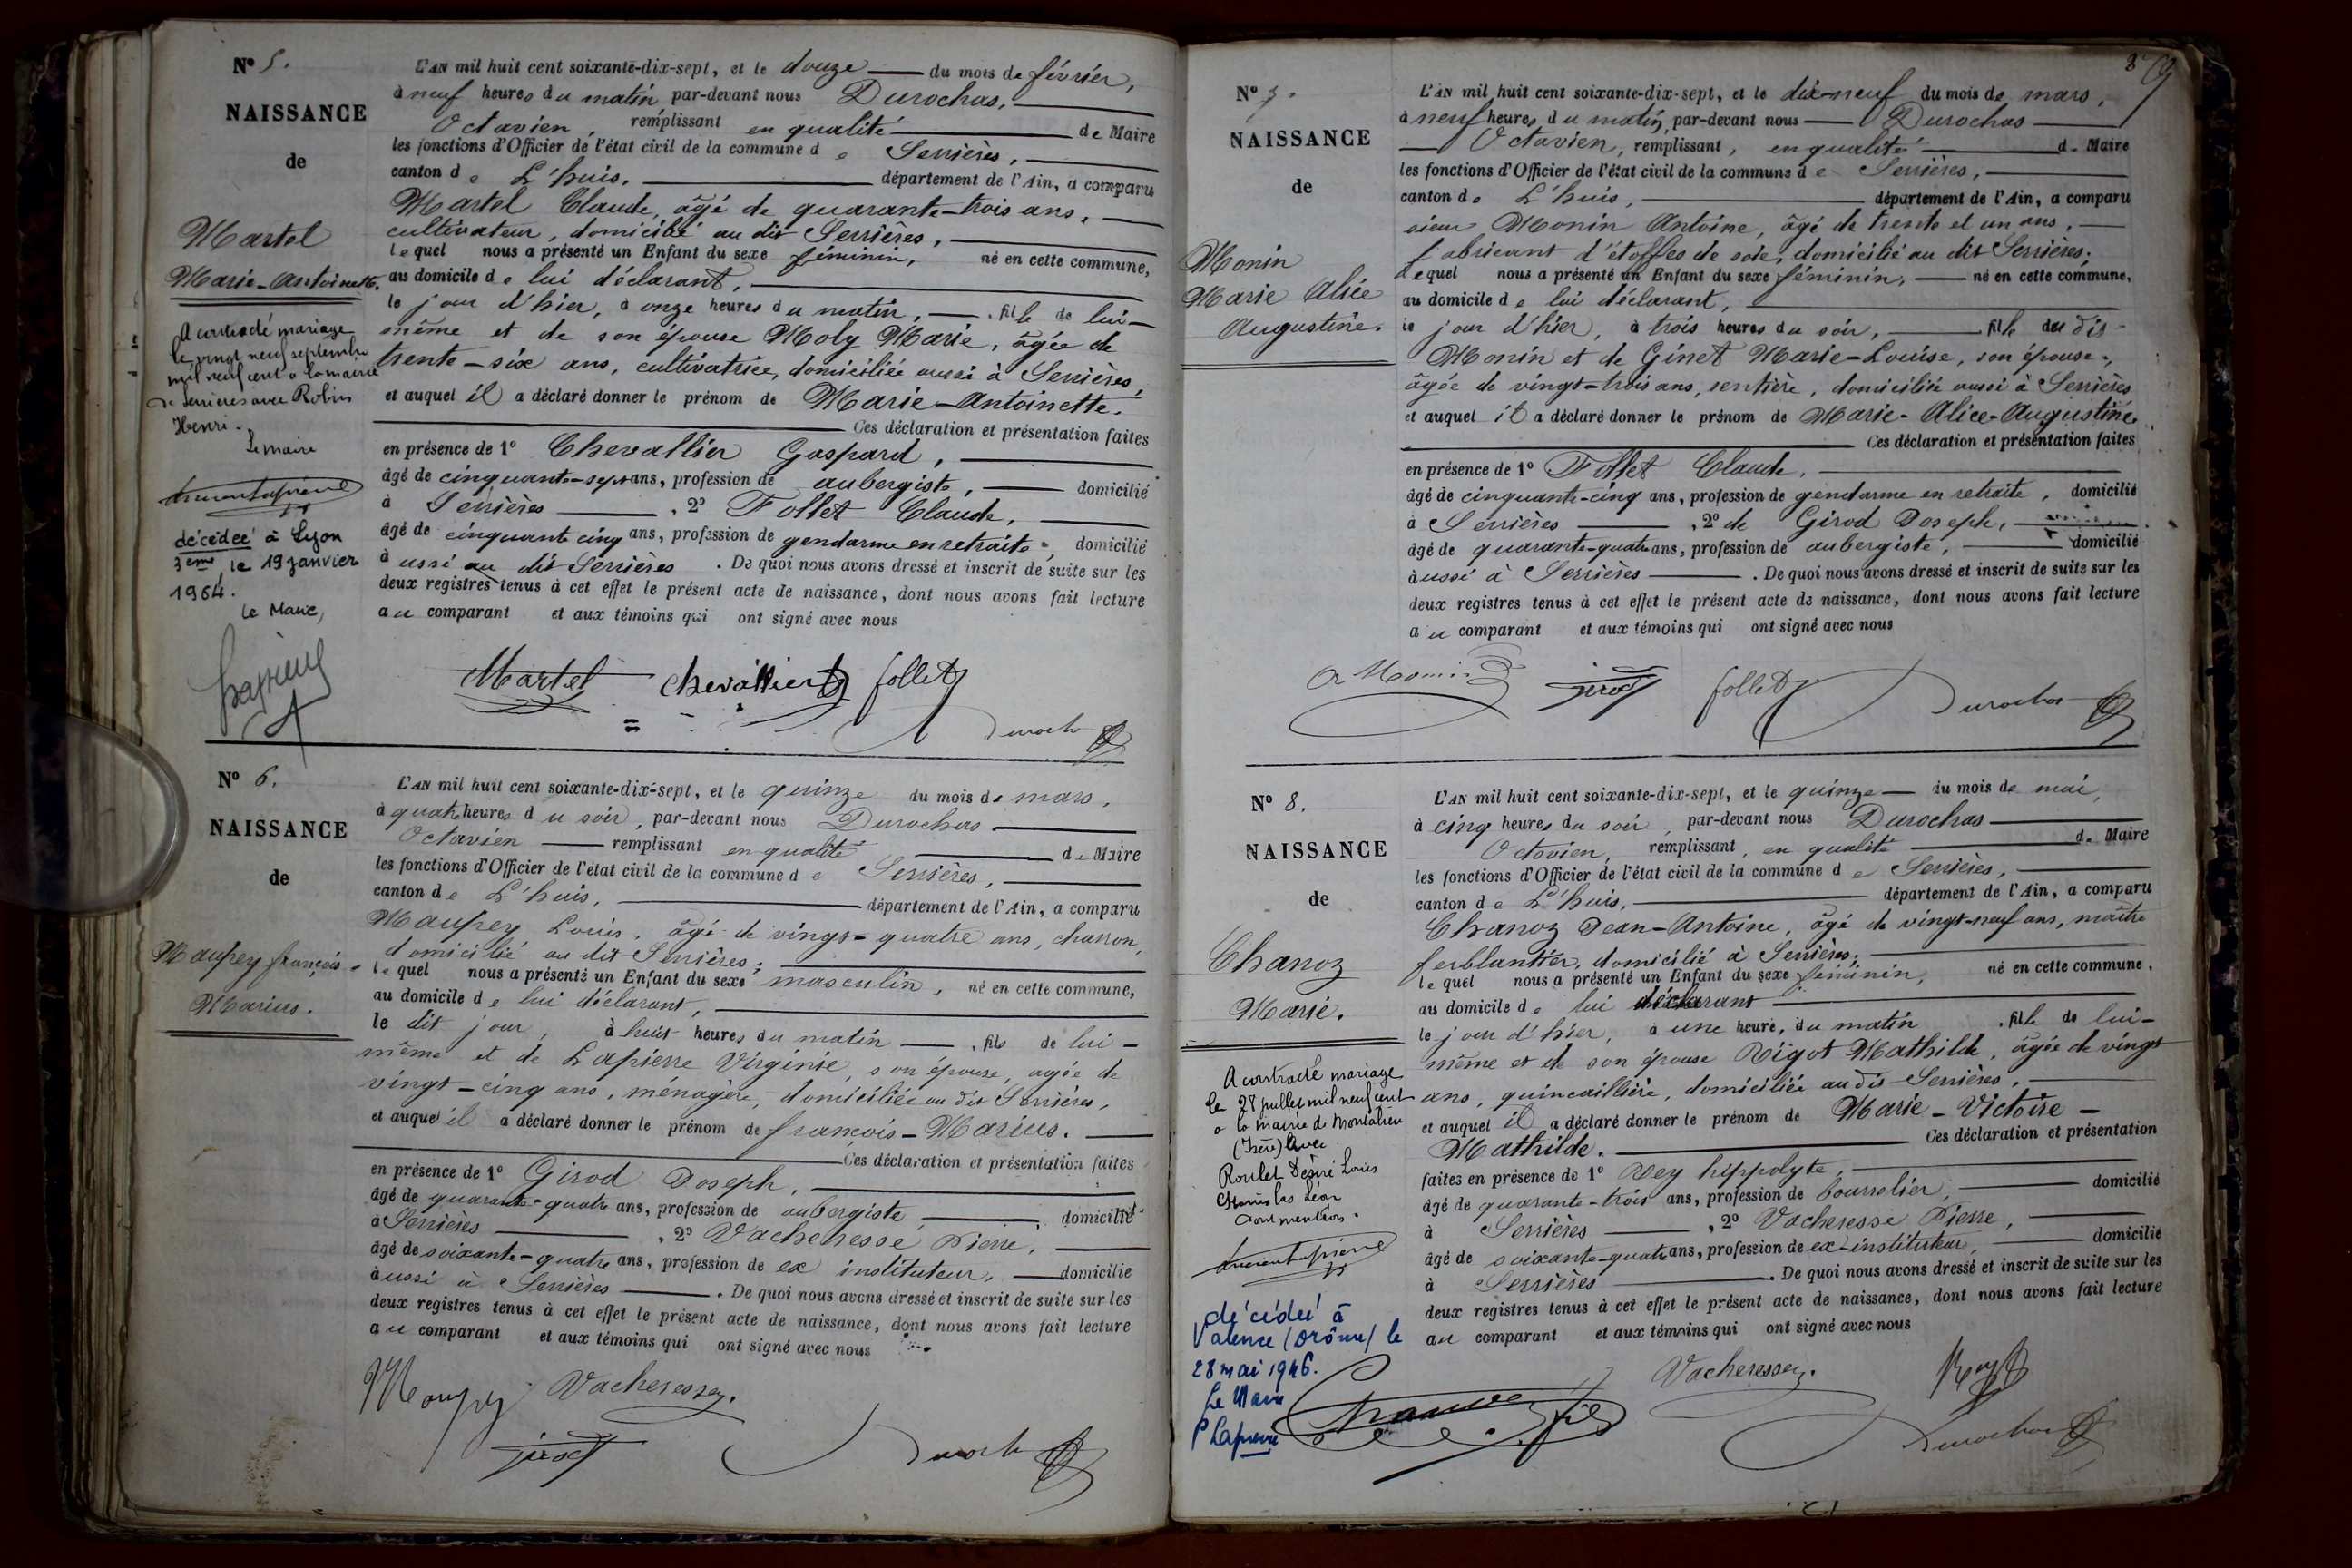 N° 5.
NAISSANCE
de
Martel
Marie-Antoinette.
A contracté mariage
le vingt neuf septembre
mil neuf cent à la mairie
de Serrières avec Robin
Henri.
Le maire
décédée à Lyon
3ème, le 19 janvier
1964.
Le Maire,
L'AN mil huit cent soixante-dix-sept, et le douze du mois de février,
à neuf heures du matin par-devant nous Durochas,
Octavien, remplissant en qualité de Maire
les fonctions d'Officier de l'état civil de la commune de Serrières,
canton de L'huis, département de l'Ain, a comparu
Martel Claude, âgé de quarante-trois ans,
cultivateur, domicilié au dit Serrières,
lequel nous a présenté un Enfant du sexe féminin, né en cette commune,
au domicile de lui déclarant,
le jour d'hier, à onze heures du matin, fille de lui-
même et de son épouse Moly Marie, âgée de
trente-six ans, cultivatrice, domiciliée aussi à Serrières,
et auquel il a déclaré donner le prénom de Marie-Antoinette.
Ces déclaration et présentation faites
en présence de 1° Chevallier Gaspard,
âgé de cinquante-sept ans, profession de aubergiste, domicilié
à Serrières, 2° Follet Claude,
âgé de cinquante cinq ans, profession de gendarme en retraite, domicilié
aussi au dit Serrières. De quoi nous avons dressé et inscrit de suite sur les
deux registres tenus à cet effet le présent acte de naissance, dont nous avons fait lecture
au comparant et aux témoins qui ont signé avec nous
Martel Chevallier follet
Duroch
N° 6.
NAISSANCE
de
Maupey françois-
Marius.
L'AN mil huit cent soixante-dix-sept, et le quinze du mois de mars,
à quatre heures du soir, par-devant nous Durochas
Octavien remplissant en qualité de Maire
les fonctions d'Officier de l'état civil de la commune de Serrières,
canton de L'huis, département de l'Ain, a comparu
Maupey Louis, âgé de vingt-quatre ans, charron,
domicilié au dit Serrières;
lequel nous a présenté un Enfant du sexe masculin, né en cette commune,
au domicile de lui déclarant,
le dit jour, à huit heures du matin, fils de lui-
même et de Lapierre Virginie, son épouse, agée de
vingt-cinq ans, ménagère, domiciliée au dit Serrières,
et auquel il a déclaré donner le prénom de françois-Marius.
Ces déclaration et présentation faites
en présence de 1° Girod Joseph,
âgé de quarante-quatre ans, profession de aubergiste, domicilié
à Serrières, 2° Vacheresse Pierre,
âgé de soixante-quatre ans, profession de ex instituteur, domicilié
aussi à Serrières. De quoi nous avons dressé et inscrit de suite sur les
deux registres tenus à cet effet le présent acte de naissance, dont nous avons fait lecture
au comparant et aux témoins qui ont signé avec nous
Maupey Vacheresse
girod Duroch
8
N° 7.
NAISSANCE
de
Monin
Marie Alice
Augustine.
L'AN mil huit cent soixante-dix-sept, et le dix-neuf du mois de mars,
à neuf heures du matin, par-devant nous Durochas
Octavien, remplissant, en qualité de Maire
les fonctions d'Officier de l'état civil de la commune de Serrières,
canton de L'huis, département de l'Ain, a comparu
sieur Monin Antoine, âgé de trente et un ans,
fabricant d'étoffes de soie, domicilié au dit Serrières;
Lequel nous a présenté un Enfant du sexe féminin, né en cette commune,
au domicile de lui déclarant,
le jour d'hier, à trois heures du soir, fille du dit
Monin et de Ginet Marie-Louise, son épouse,
âgée de vingt-trois ans, rentière, domiciliée aussi à Serrières
et auquel il a déclaré donner le prénom de Marie-Alice-Augustine.
Ces déclaration et présentation faites
en présence de 1° Follet Claude,
âgé de cinquante-cinq ans, profession de gendarme en retraite, domicilié
à Serrières, 2° de Girod Joseph,
âgé de quarante-quatre ans, profession de aubergiste, domicilié
aussi à Serrières. De quoi nous avons dressé et inscrit de suite sur les
deux registres tenus à cet effet le présent acte de naissance, dont nous avons fait lecture
au comparant et aux témoins qui ont signé avec nous
A Monin girod follet Durochas
N° 8.
NAISSANCE
de
Chanoz
Marie.
A contracté mariage
le 28 juillet mil neuf cent
à la mairie de Montalieu
(Isère) avec
Roulet Désiré Louis
Stanislas Léon
dont mention.
décédée à
Valence (Drôme) le
28 mai 1946.
Le Maire
P Lapierre
L'AN mil huit cent soixante-dix-sept, et le quinze du mois de mai,
à cinq heures du soir, par-devant nous Durochas
Octavien, remplissant, en qualité de Maire
les fonctions d'Officier de l'état civil de la commune de Serrières,
canton de L'huis, département de l'Ain, a comparu
Chanoz Jean-Antoine, âgé de vingt-neuf ans, maître
ferblantier, domicilié à Serrières;
lequel nous a présenté un Enfant du sexe féminin, né en cette commune,
au domicile de lui déclarant
le jour d'hier, à une heure, du matin, fille de lui-
même et de son épouse Rigot Mathilde, âgée de vingt
ans, quincaillière, domiciliée au dit Serrières,
et auquel il a déclaré donner le prénom de Marie-Victoire-
Mathilde. Ces déclaration et présentation
faites en présence de 1° Rey hippolyte,
âgé de quarante-trois ans, profession de bourrelier, domicilié
à Serrières, 2° Vacheresse Pierre,
âgé de soixante-quatre ans, profession de ex-instituteur, domicilié
à Serrières. De quoi nous avons dressé et inscrit de suite sur les
deux registres tenus à cet effet le présent acte de naissance, dont nous avons fait lecture
au comparant et aux témoins qui ont signé avec nous
Vacheresse Rey
Chanoz fils Durochas